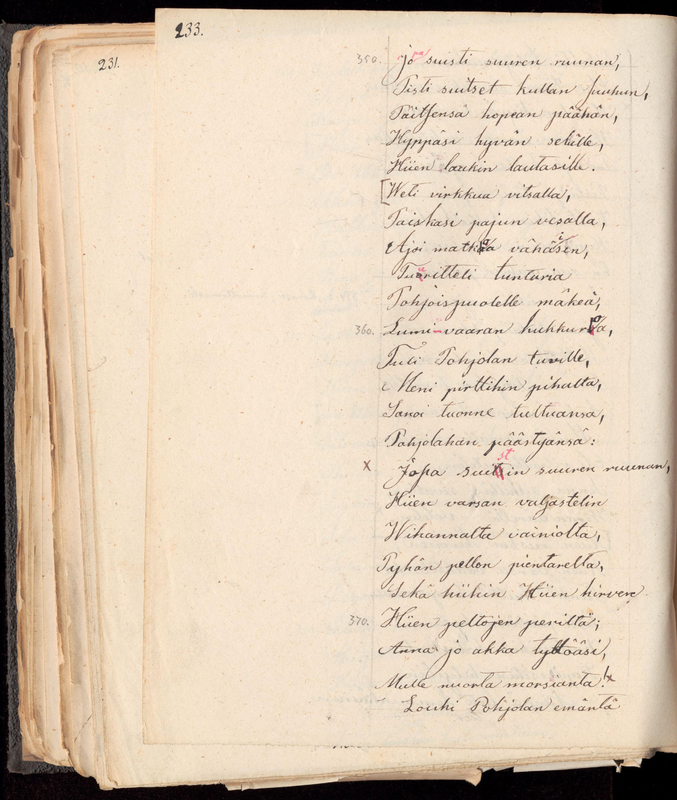 233.
231.
350. Jopa suisti suuren ruunan,
Pisti suitset kullan suuhun,
Päitsensä hopean päähän,
Hyppäsi hyvän selälle,
Hiien laukin lautasille.
[Weti virkkua vitsalla,
Paiskasi pajun vesalla,
Ajoi matkoa vähäisen,
Tuuritteli tunturia
Pohjoispuolelle mäkeä,
360. Lumi-vaaran kukkuroa,
Tuli Pohjolan tuville,
Meni pirttihin pihalta,
Sanoi tuonne tultuansa,
Pohjolahan päästyänsä:
x Jopa suistin suuren ruunan,
Hiien varsan valjastelin
Wihannalta vainiolta,
Pyhän pellon pientarelta,
Sekä hiihin Hiien hirven
370. Hiien peltojen periltä;
Anna jo akka tyttöäsi,
Mulle nuorta morsianta! x
Louhi Pohjolan emäntä